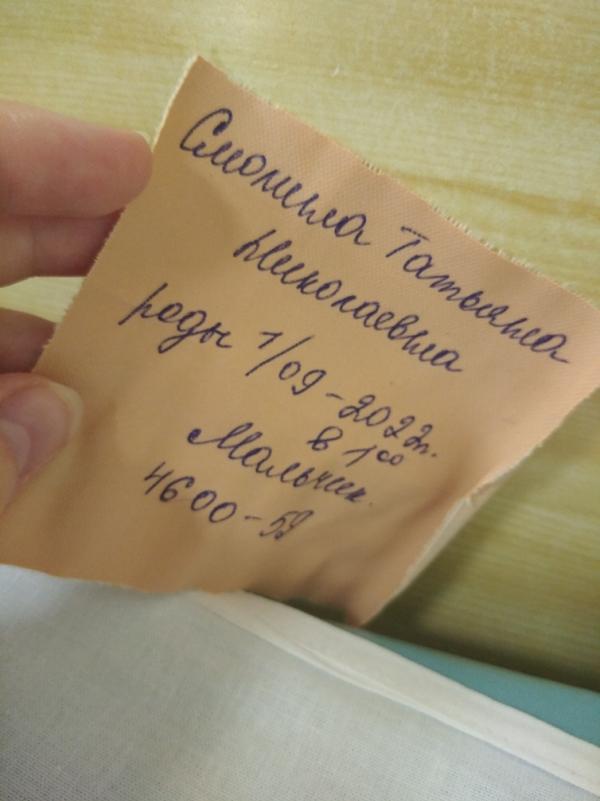 Смолина Татьяна
Николаевна
роды 1/09-2022г.
в 1⁰⁰
Мальчик.
4600-59